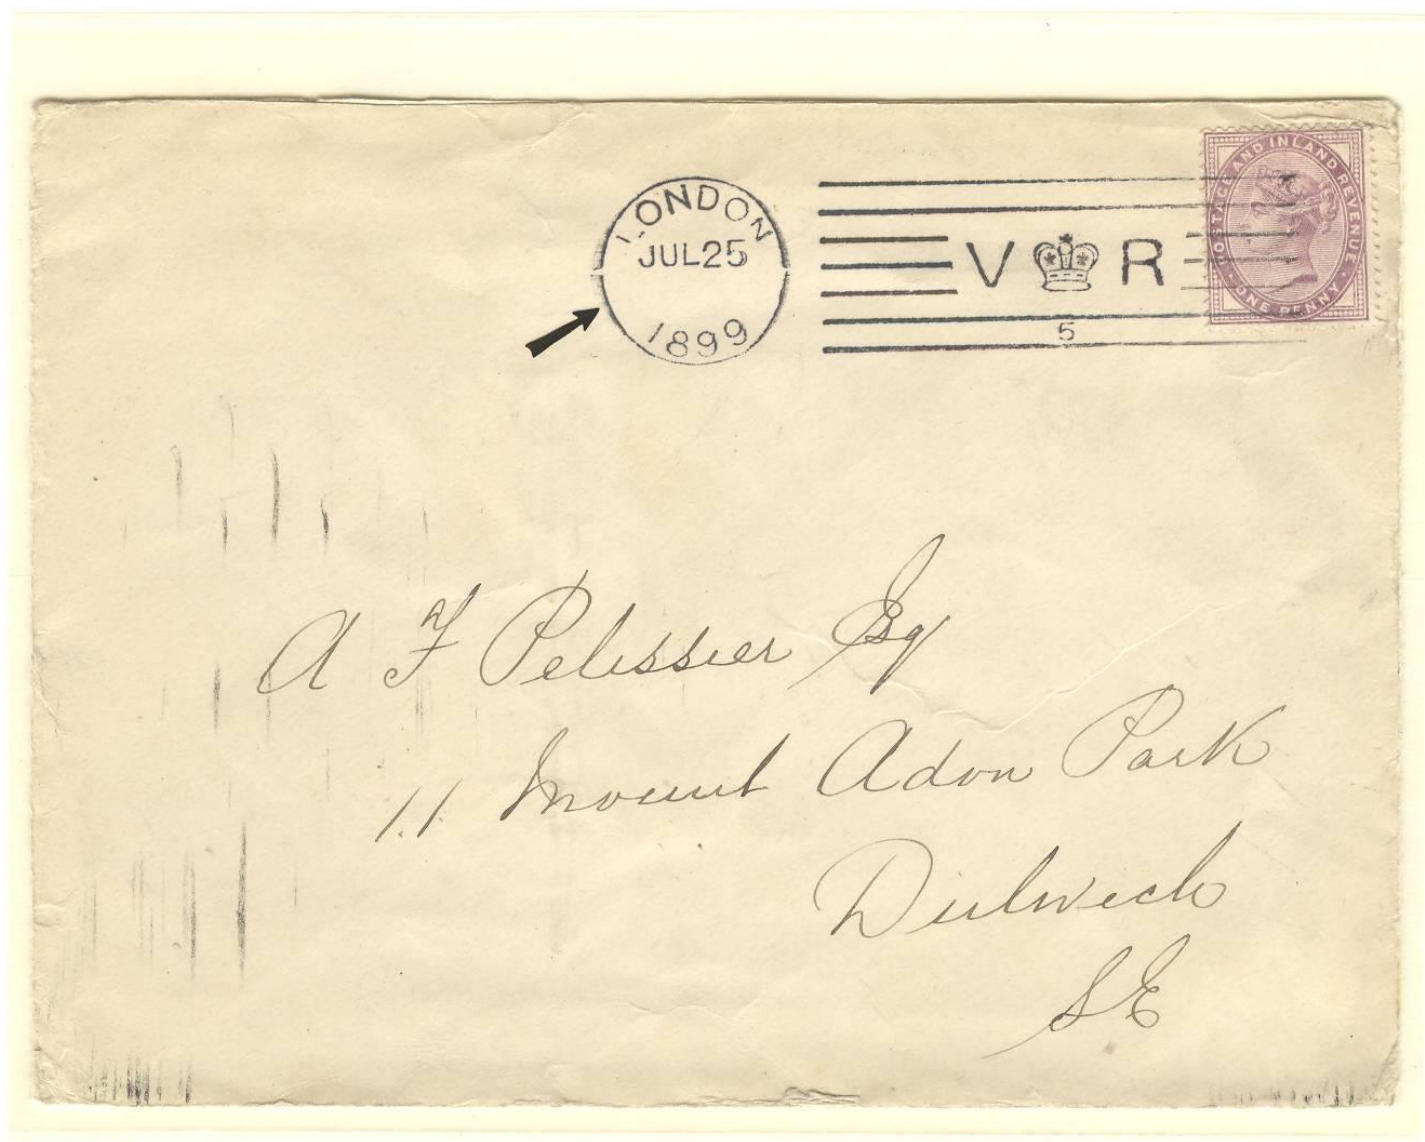 LONDON
JUL 25
1899
V R
5
POSTAGE AND INLAND REVENUE
ONE PENNY
A F Pelissier Esq
11 Mount Adon Park
Dulwich
SE